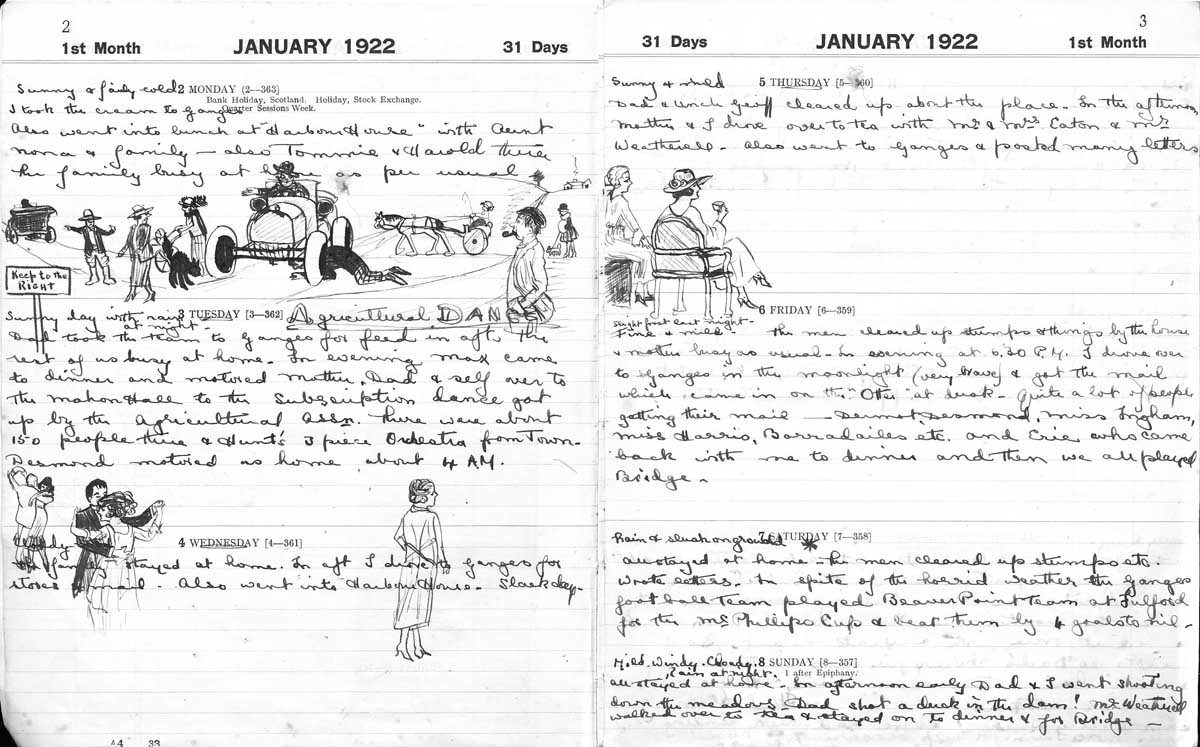 2
1st Month JANUARY 1922 31 Days
Sunny & fairly cold 2 MONDAY (2—363)
Bank Holiday, Scotland. Holiday, Stock Exchange.
Quarter Sessions Week.
I took the cream to Ganges
Also went into lunch at "Harbour House" with Aunt
nona & family — also Tommie & Harold there
The family busy at home as per usual
Keep to the
RIGHT
Sunny day with rain 3 TUESDAY [3—362]
at night -
Agricultural DANCE
Dad took the team to Ganges for feed in aft. The
rest of us busy at home. In evening Max came
to dinner and motored Mother, Dad & self over to
the Mahon Hall to the Subscription dance got
up by the Agricultural Assn. There were about
150 people there & Hunt's 3 piece Orchestra from Town -
Desmond motored us home about 4 AM.
4 WEDNESDAY [4—361]
Windy
The family stayed at home. In aft I drove to Ganges for
stores & mail. Also went into Harbour House. Slack day -
A4 33
3
31 Days JANUARY 1922 1st Month
Sunny & mild 5 THURSDAY [5—360]
Dad & Uncle Geoff cleared up about the place. In the afternoon
Mother & I drove over to tea with Mr & Mrs Eaton & Mr
Weatherell - Also went to Ganges & posted many letters
6 FRIDAY [6—359]
Slight frost last night -
Fine & mild The men cleared up stumps & things by the house
& Mother busy as usual - In evening at 6.30 P.M. I drove over
to Ganges in the moonlight (very brave) & got the mail
which came in on the "Otter" at dusk - Quite a lot of people
getting their mail - Desmond, Miss Ingham,
Miss Harris, Borradailes etc. and Eric who came
back with me to dinner and then we all played
Bridge -
Rain & slush on ground 7 SATURDAY [7—358]
All stayed at home - The men cleared up stumps etc.
Wrote letters. In spite of the horrid weather the Ganges
football Team played Beaver Point Team at Fulford
for the McPhillips Cup & beat them by 4 goals to nil -
Mild. Windy. Cloudy. 8 SUNDAY [8—357]
Rain at night. 1 after Epiphany.
All stayed at home - In afternoon early Dad & I went shooting
down the meadows Dad shot a duck in the dam! Mr Weatherell
walked over to tea & stayed on to dinner & for Bridge -